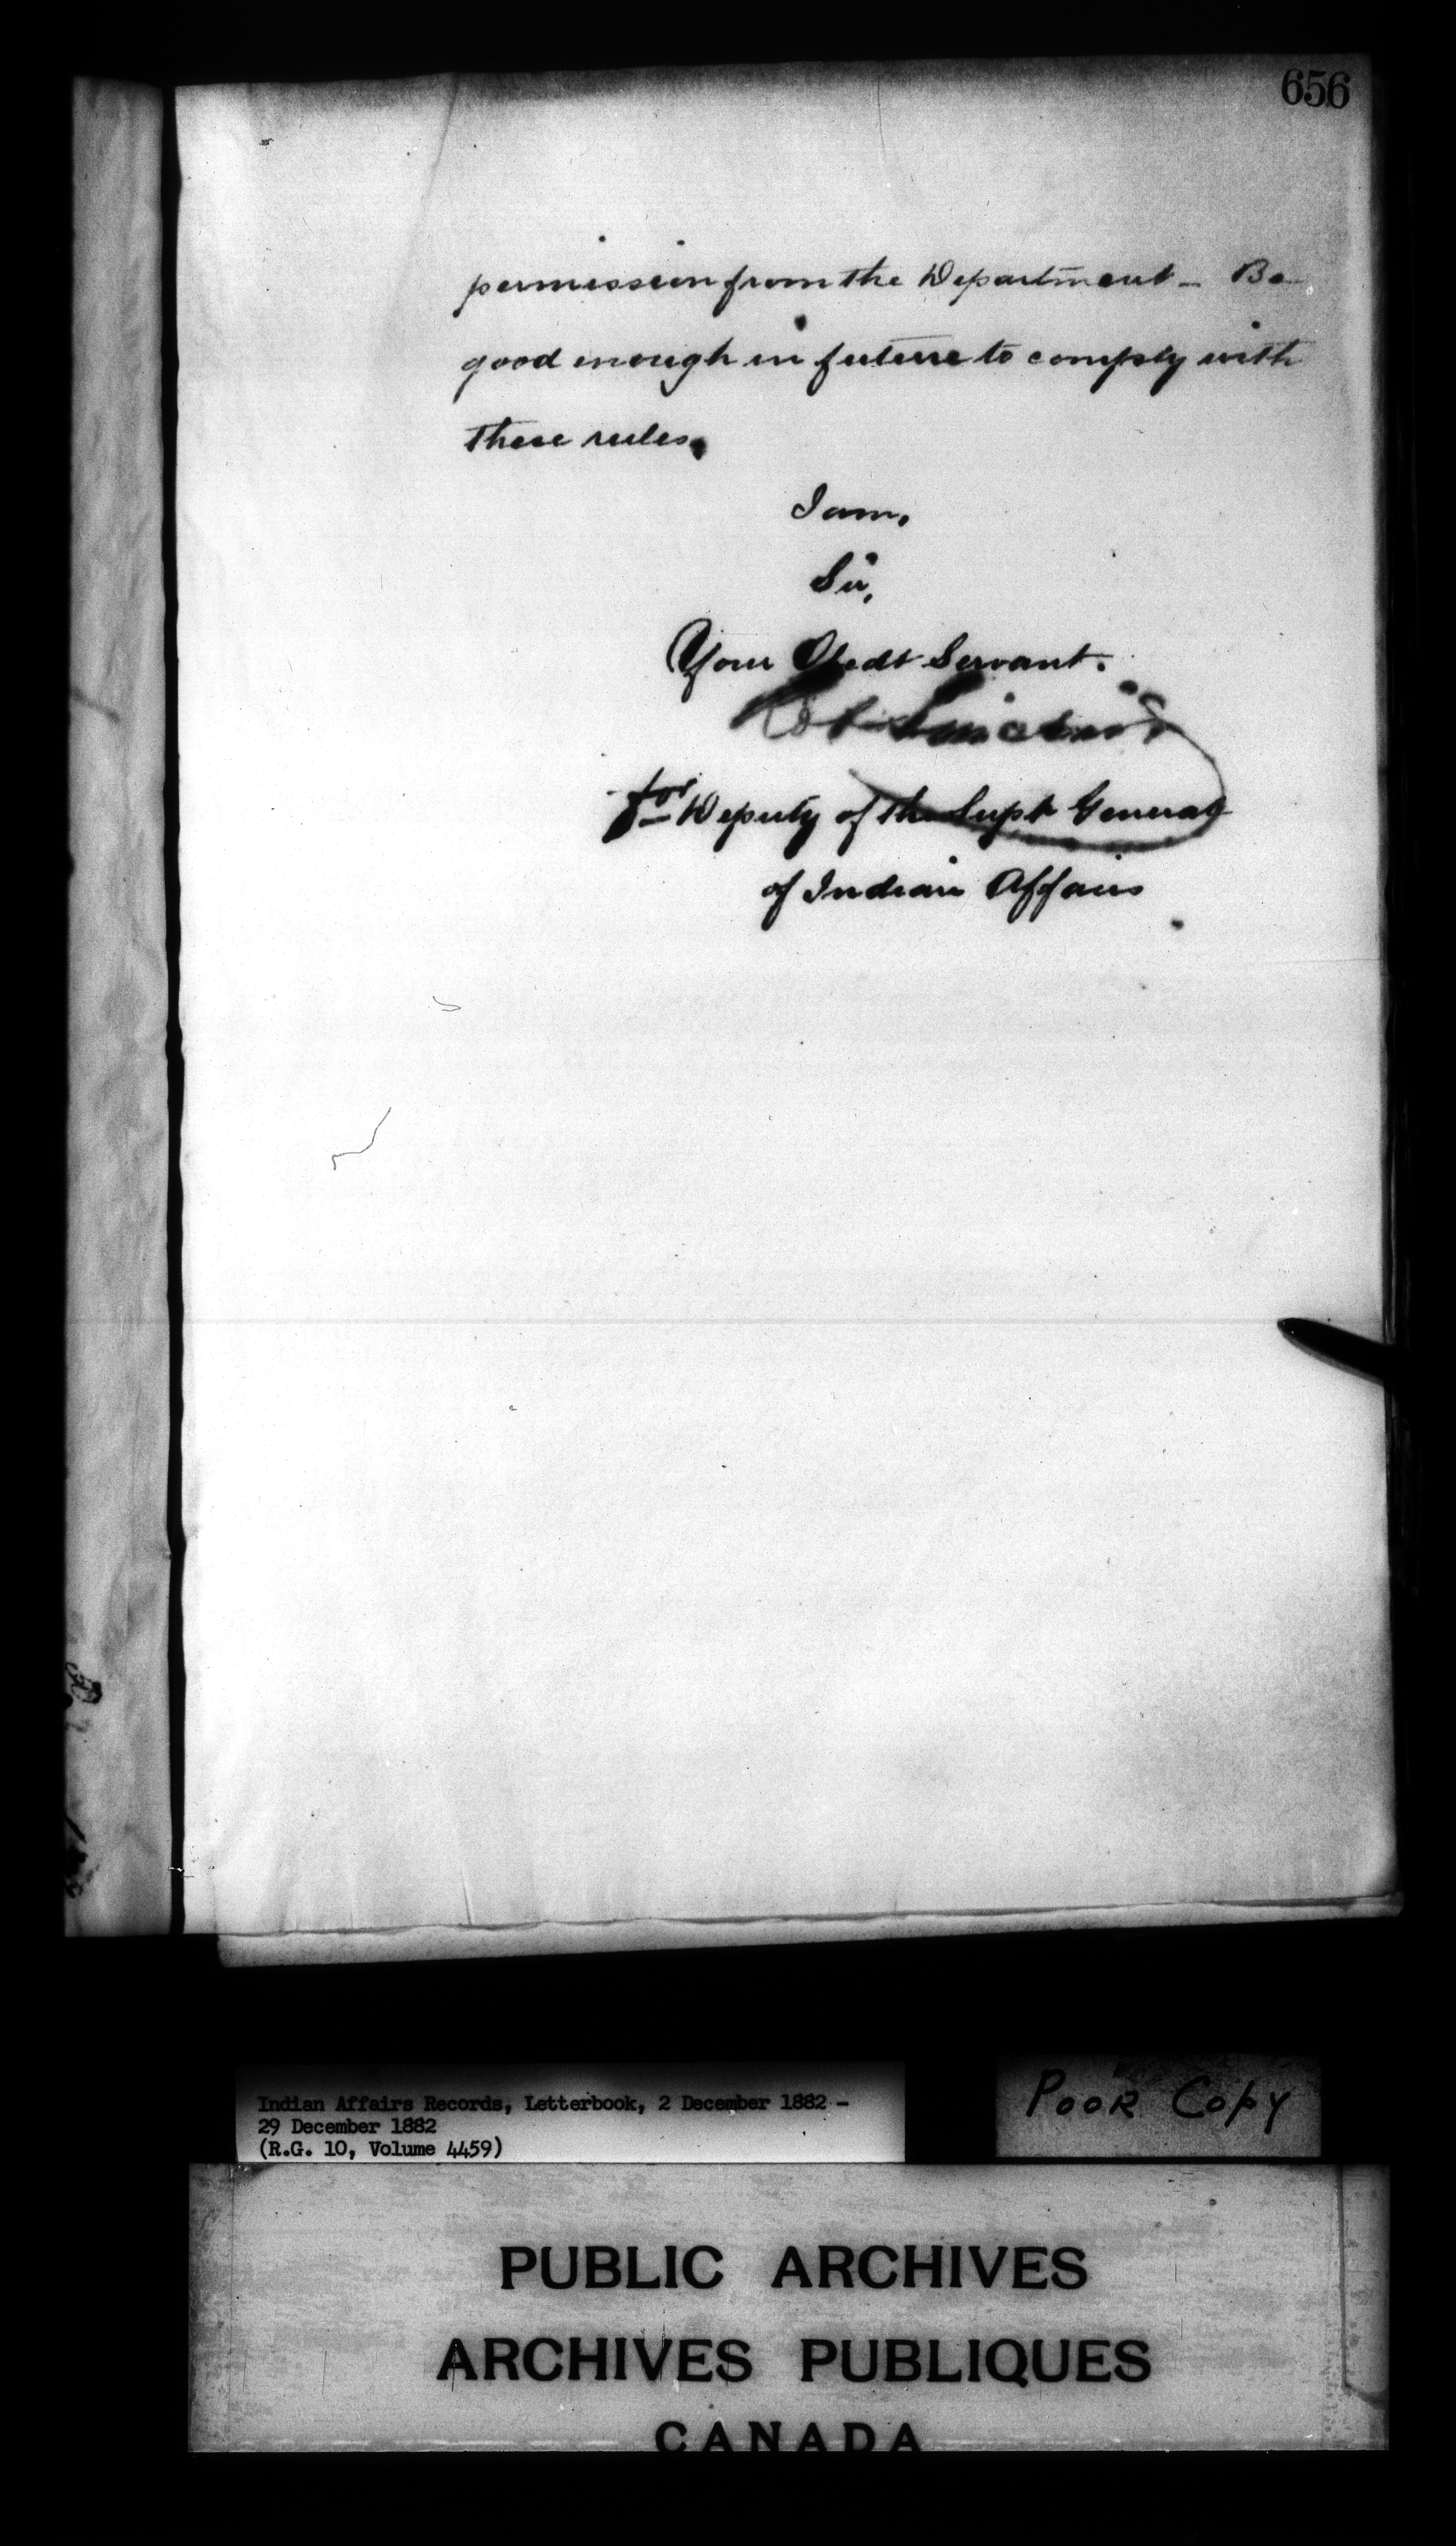 656
permission from the Department - Be
good enough in future to comply with
these rules.
I am,
Sir,
Your Obedt Servant.
Robt Sinclair
for Deputy of the Supt General
of Indian Affairs
Indian Affairs Records, Letterbook, 2 December 1882 -
29 December 1882
(R.G. 10, Volume 4459)
POOR COPY
PUBLIC ARCHIVES
ARCHIVES PUBLIQUES
CANADA